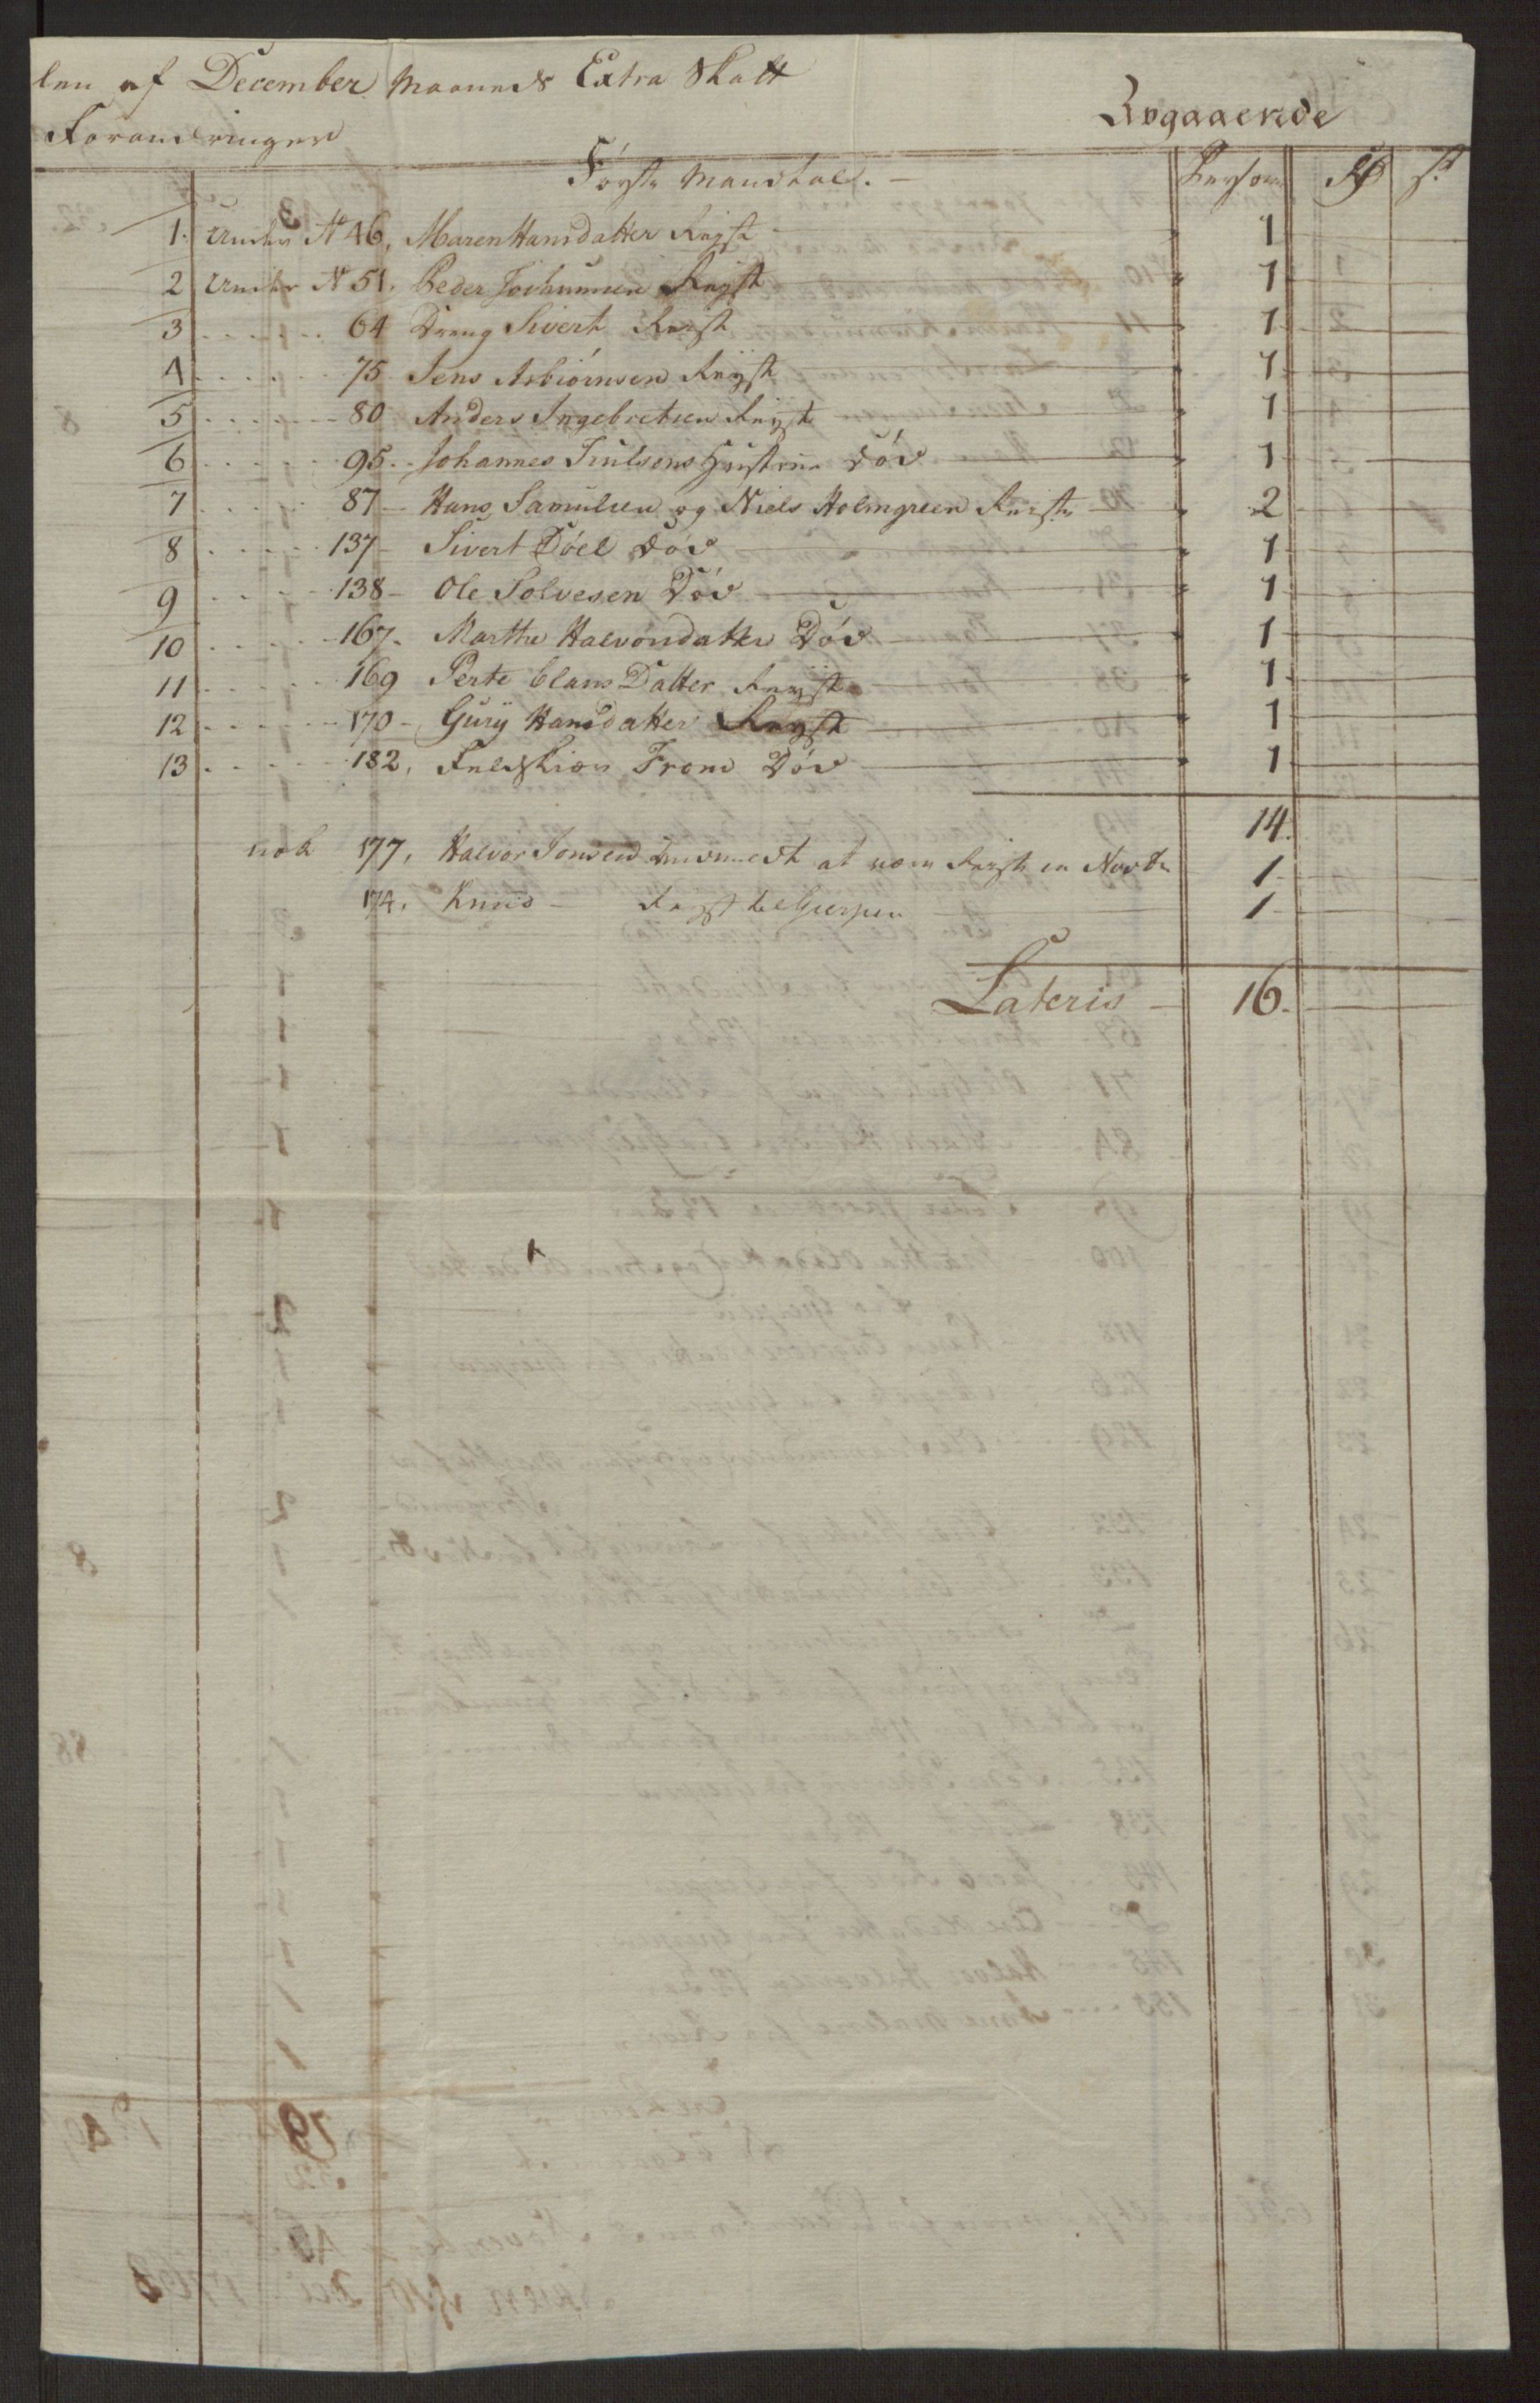 len af December Maaneds Extra Skatt
Afgaaende
Forandringer
Første Mandtal. Person Rd s.
1. Under N 46, Maren Hansdatter Reyst 1
2 Under N 51, Peder Jochumsen Reyst 1
3 64 Dreng Sivert Reist 1
4 75 Jens Asbiørnsen Reyst 1
5 80 Anders Ingebretsen Reyst 1
6 95 Johannes Hustrue Død 1
7 87 Hans Samulsen og Niels Holmgreen Reyste 2
8 137 Sivert Døel Død 1
9 138 Ole Solvesen Død 1
10 167 Marthe Halvorsdatter Død 1
11 169 Perte Clams Datter Reyst 1
12 170 Gurij Hansdatter Reyst 1
13 182, From Død 1
14.
nok 177, Halvor Jonsen at være Reyst en Novbr 1
174, Knud - Reyst til Gierpen 1
Lateris 16